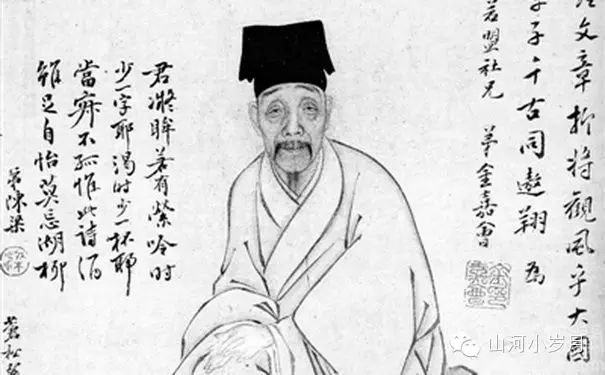 文章抑將觀風乎大國
子千古同遨翔 為
若盟社兄 弟金嘉會
君凝眸若有縈吟時
少一字耶渴時少一杯耶
當癖不孤惟此詩酒
雖足自怡莫忘湖柳
弟陳梁
山河小岁月